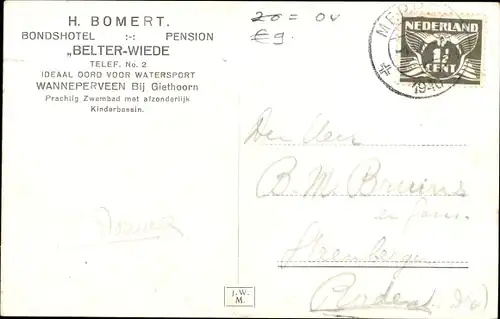 H. BOMERT.
BONDSHOTEL :-: PENSION
„BELTER-WIEDE
TELEF. No. 2
IDEAAL OORD VOOR WATERSPORT
WANNEPERVEEN Bij Giethoorn
Prachtig Zwembad met afzonderlijk
Kinderbassin.
20 = 04
€9.
NEDERLAND
1½
CENT
1940
Den Heer
B. M. Bruins
en fam.
Steenbergen
Roden (Dr)
J.W.
M.